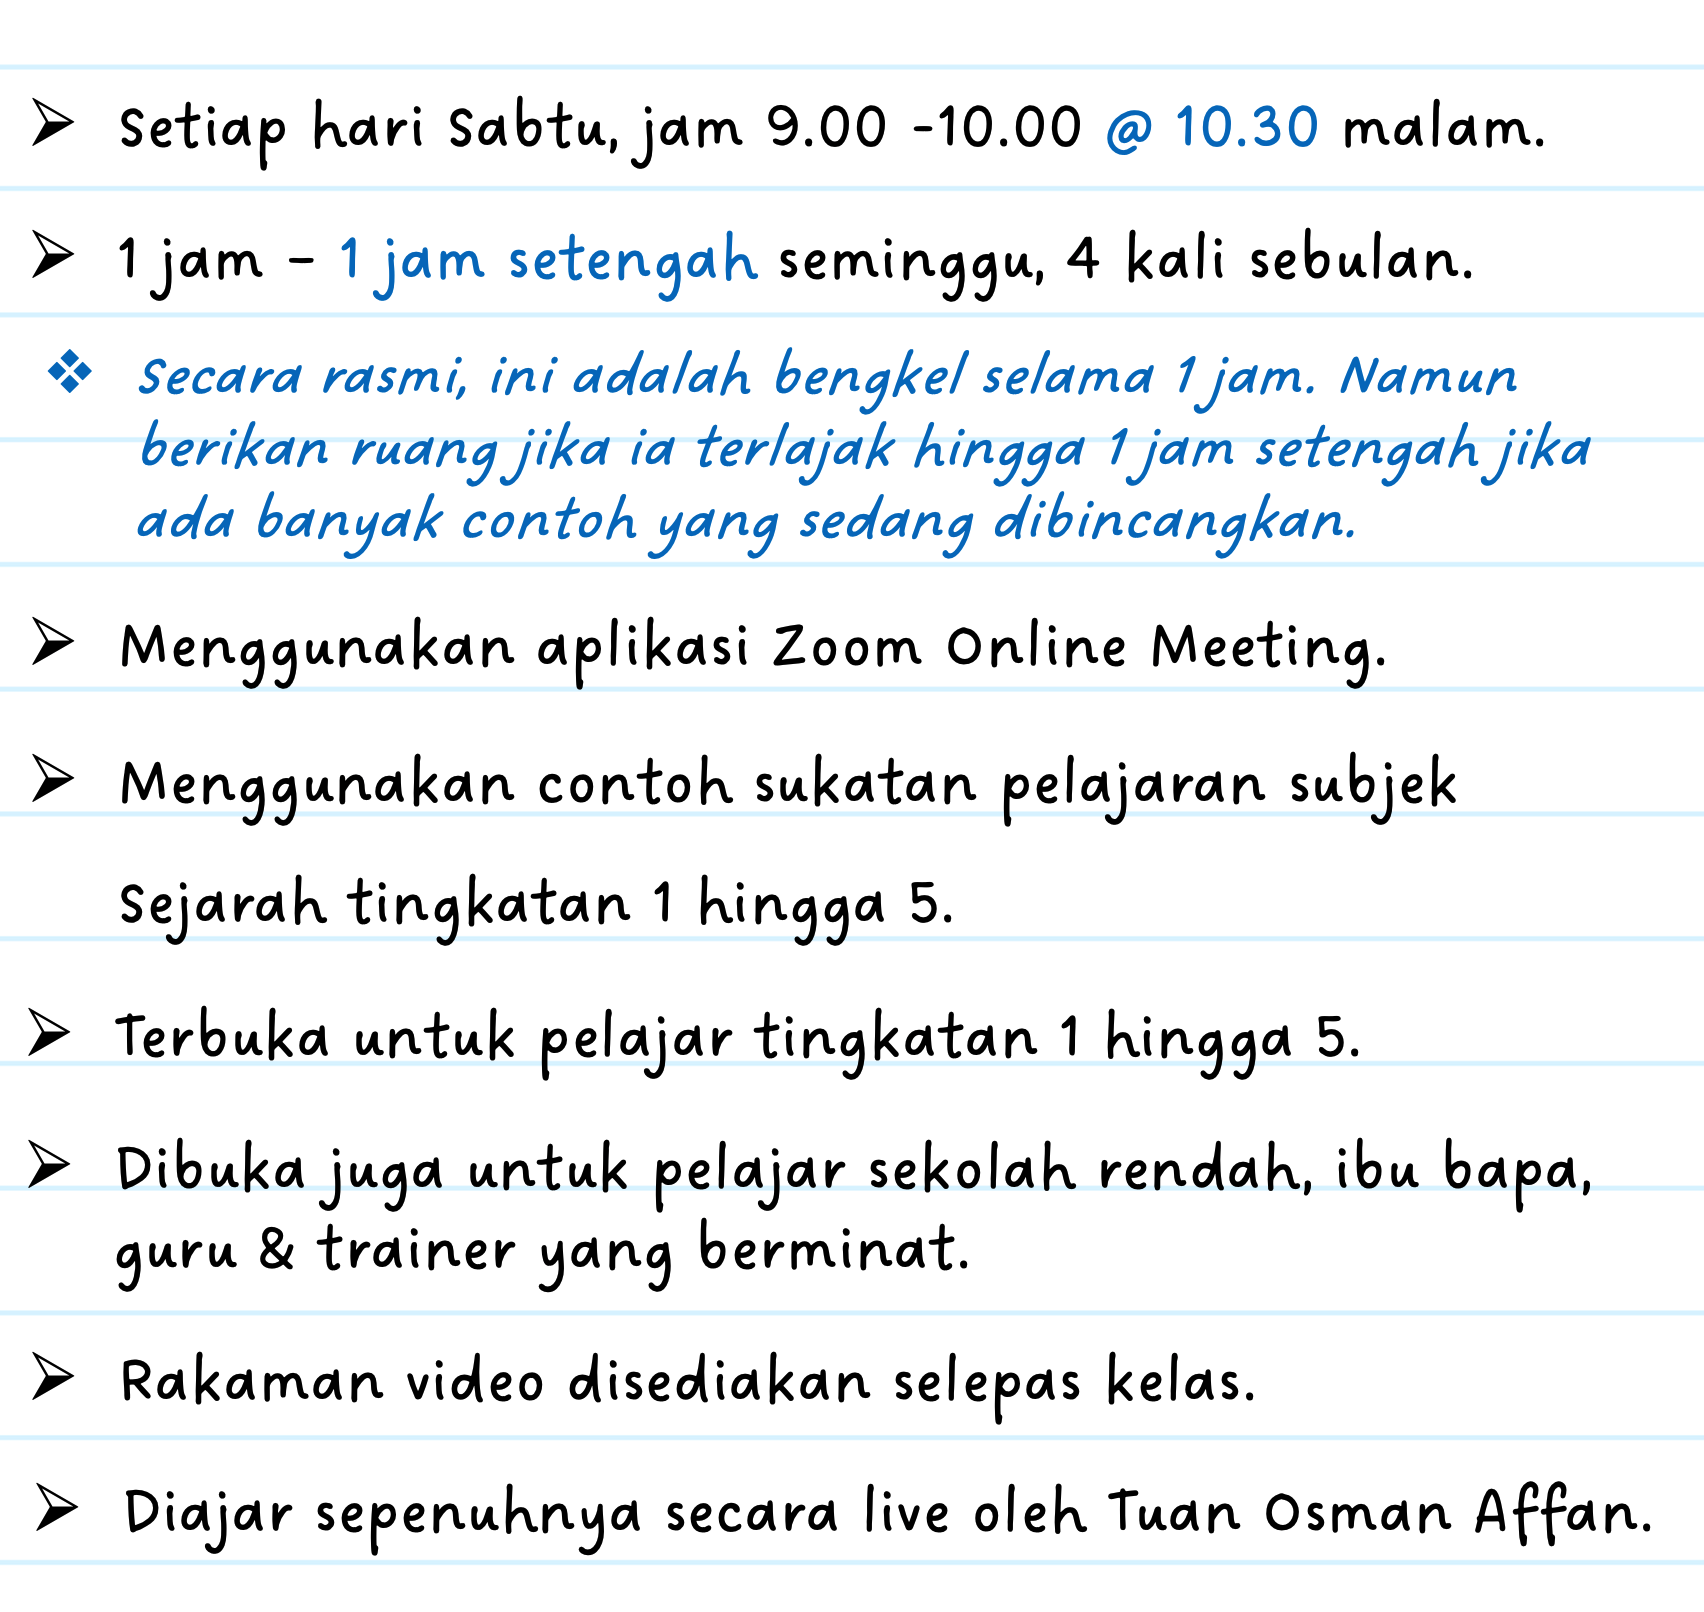 ➢ Setiap hari Sabtu, jam 9.00 -10.00 @ 10.30 malam.
➢ 1 jam - 1 jam setengah seminggu, 4 kali sebulan.
❖ Secara rasmi, ini adalah bengkel selama 1 jam. Namun
berikan ruang jika ia terlajak hingga 1 jam setengah jika
ada banyak contoh yang sedang dibincangkan.
➢ Menggunakan aplikasi Zoom Online Meeting.
➢ Menggunakan contoh sukatan pelajaran subjek
Sejarah tingkatan 1 hingga 5.
➢ Terbuka untuk pelajar tingkatan 1 hingga 5.
➢ Dibuka juga untuk pelajar sekolah rendah, ibu bapa,
guru & trainer yang berminat.
➢ Rakaman video disediakan selepas kelas.
➢ Diajar sepenuhnya secara live oleh Tuan Osman Affan.